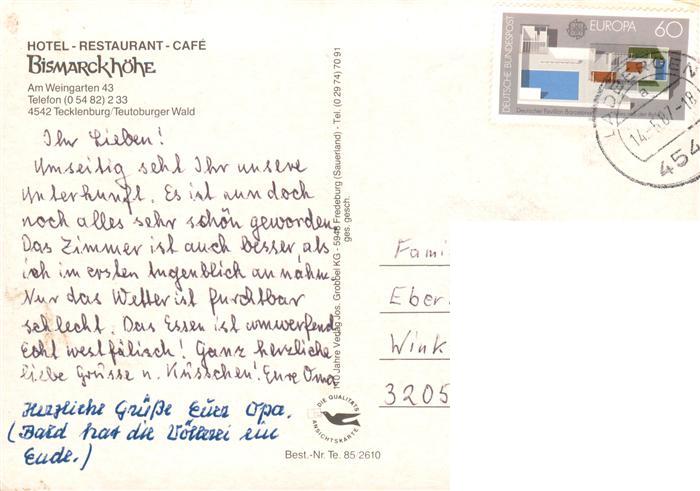 HOTEL - RESTAURANT - CAFÉ
BISMARCKHÖHE
Am Weingarten 43
Telefon (0 54 82) 2 33
4542 Tecklenburg/Teutoburger Wald
Ihr Lieben!
Umseitig seht Ihr unsere
Unterkunft. Es ist nun doch
noch alles sehr schön geworden.
Das Zimmer ist auch besser, als
ich im ersten Augenblick annahm.
Nur das Wetter ist furchtbar
schlecht. Das Essen ist umwerfend
Echt westfälisch! Ganz herzliche
liebe Grüsse u. Küsschen! Eure Oma
Herzliche Grüße Euer Opa.
(Bald hat die Völlerei ein
Ende.)
110 Jahre Verlag Jos. Grobbel KG - 5948 Fredeburg (Sauerland) - Tel. (0 29 74) 70 91
ges. gesch.
DIE QUALITÄTS
ANSICHTSKARTE
Best.-Nr. Te. 85 2610
DEUTSCHE BUNDESPOST
EUROPA 60
Deutscher Pavillon Barcelona
14.-5.87-18
454
Fami
Eber
Wink
3205